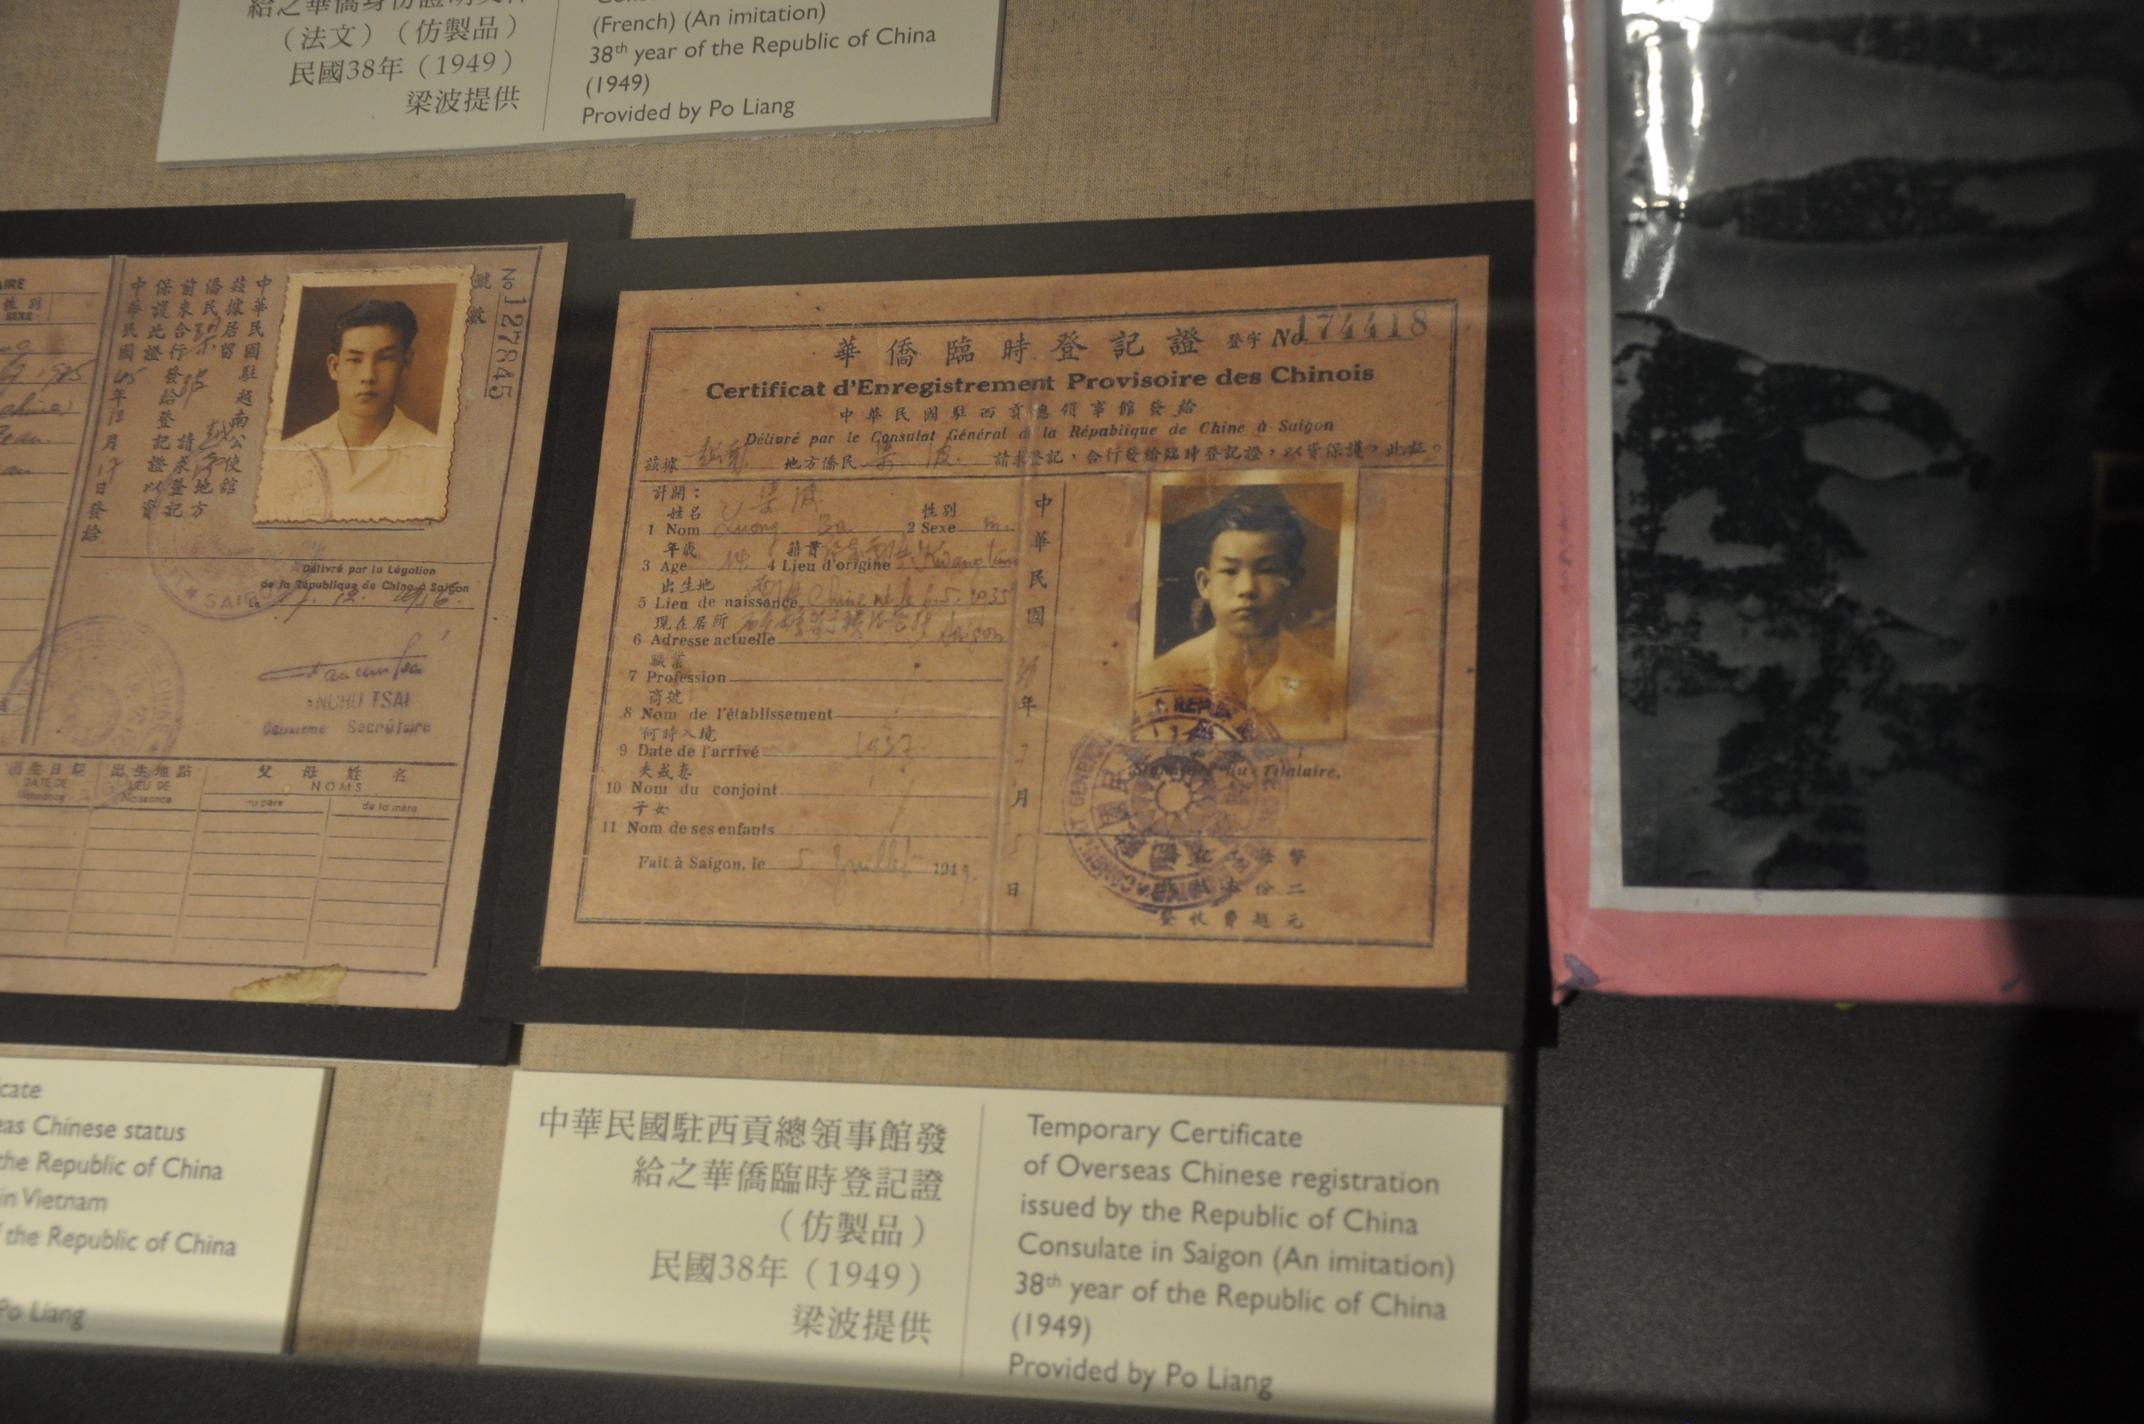 （法文）（仿製品）
民國38年（1949）
梁波提供
(French) (An imitation)
38th year of the Republic of China
(1949)
Provided by Po Liang
性別
SEXE
No 127845
號數
中華民國駐越南公使館
茲據居留
僑民
前來合行發給登記證以資
保護此證
中華民國45年12月17日發給
Délivré par la Légation
de la République de Chine à Saigon
17. 12. 1956.
TSAI
Deuxième Secrétaire
出生日期
出生地點
父母姓名
DATE DE
LIEU DE
Naissance
NOMS
du père
de la mère
華僑臨時登記證 登字 No 174418
Certificat d'Enregistrement Provisoire des Chinois
中華民國駐西貢總領事館發給
Délivré par le Consulat Général de la République de Chine à Saigon
茲據 越南 地方僑民 梁波 請求登記，合行發給臨時登記證，以資保護，此証。
計開：
姓名 梁波
性別
1 Nom Luong Ba 2 Sexe m.
年歲
籍貫
3 Age 14 4 Lieu d'origine
出生地
5 Lieu de naissance Chine né le 6.5.1935
現在居所
6 Adresse actuelle Saigon
職業
7 Profession
商號
8 Nom de l'établissement
何時入境
9 Date de l'arrivé 1937.
夫或妻
10 Nom du conjoint
子女
11 Nom de ses enfants
Fait à Saigon, le 5 Juillet 1949.
中華民國 38年 7月 5日
Signature du Titulaire,
登收費越元
cate
eas Chinese status
the Republic of China
in Vietnam
the Republic of China
Po Liang
中華民國駐西貢總領事館發
給之華僑臨時登記證
（仿製品）
民國38年（1949）
梁波提供
Temporary Certificate
of Overseas Chinese registration
issued by the Republic of China
Consulate in Saigon (An imitation)
38th year of the Republic of China
(1949)
Provided by Po Liang